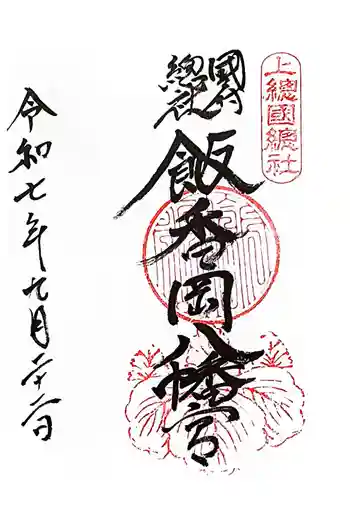 上總國總社
國府
總社
飯香岡八幡宮
令和七年九月二十二日